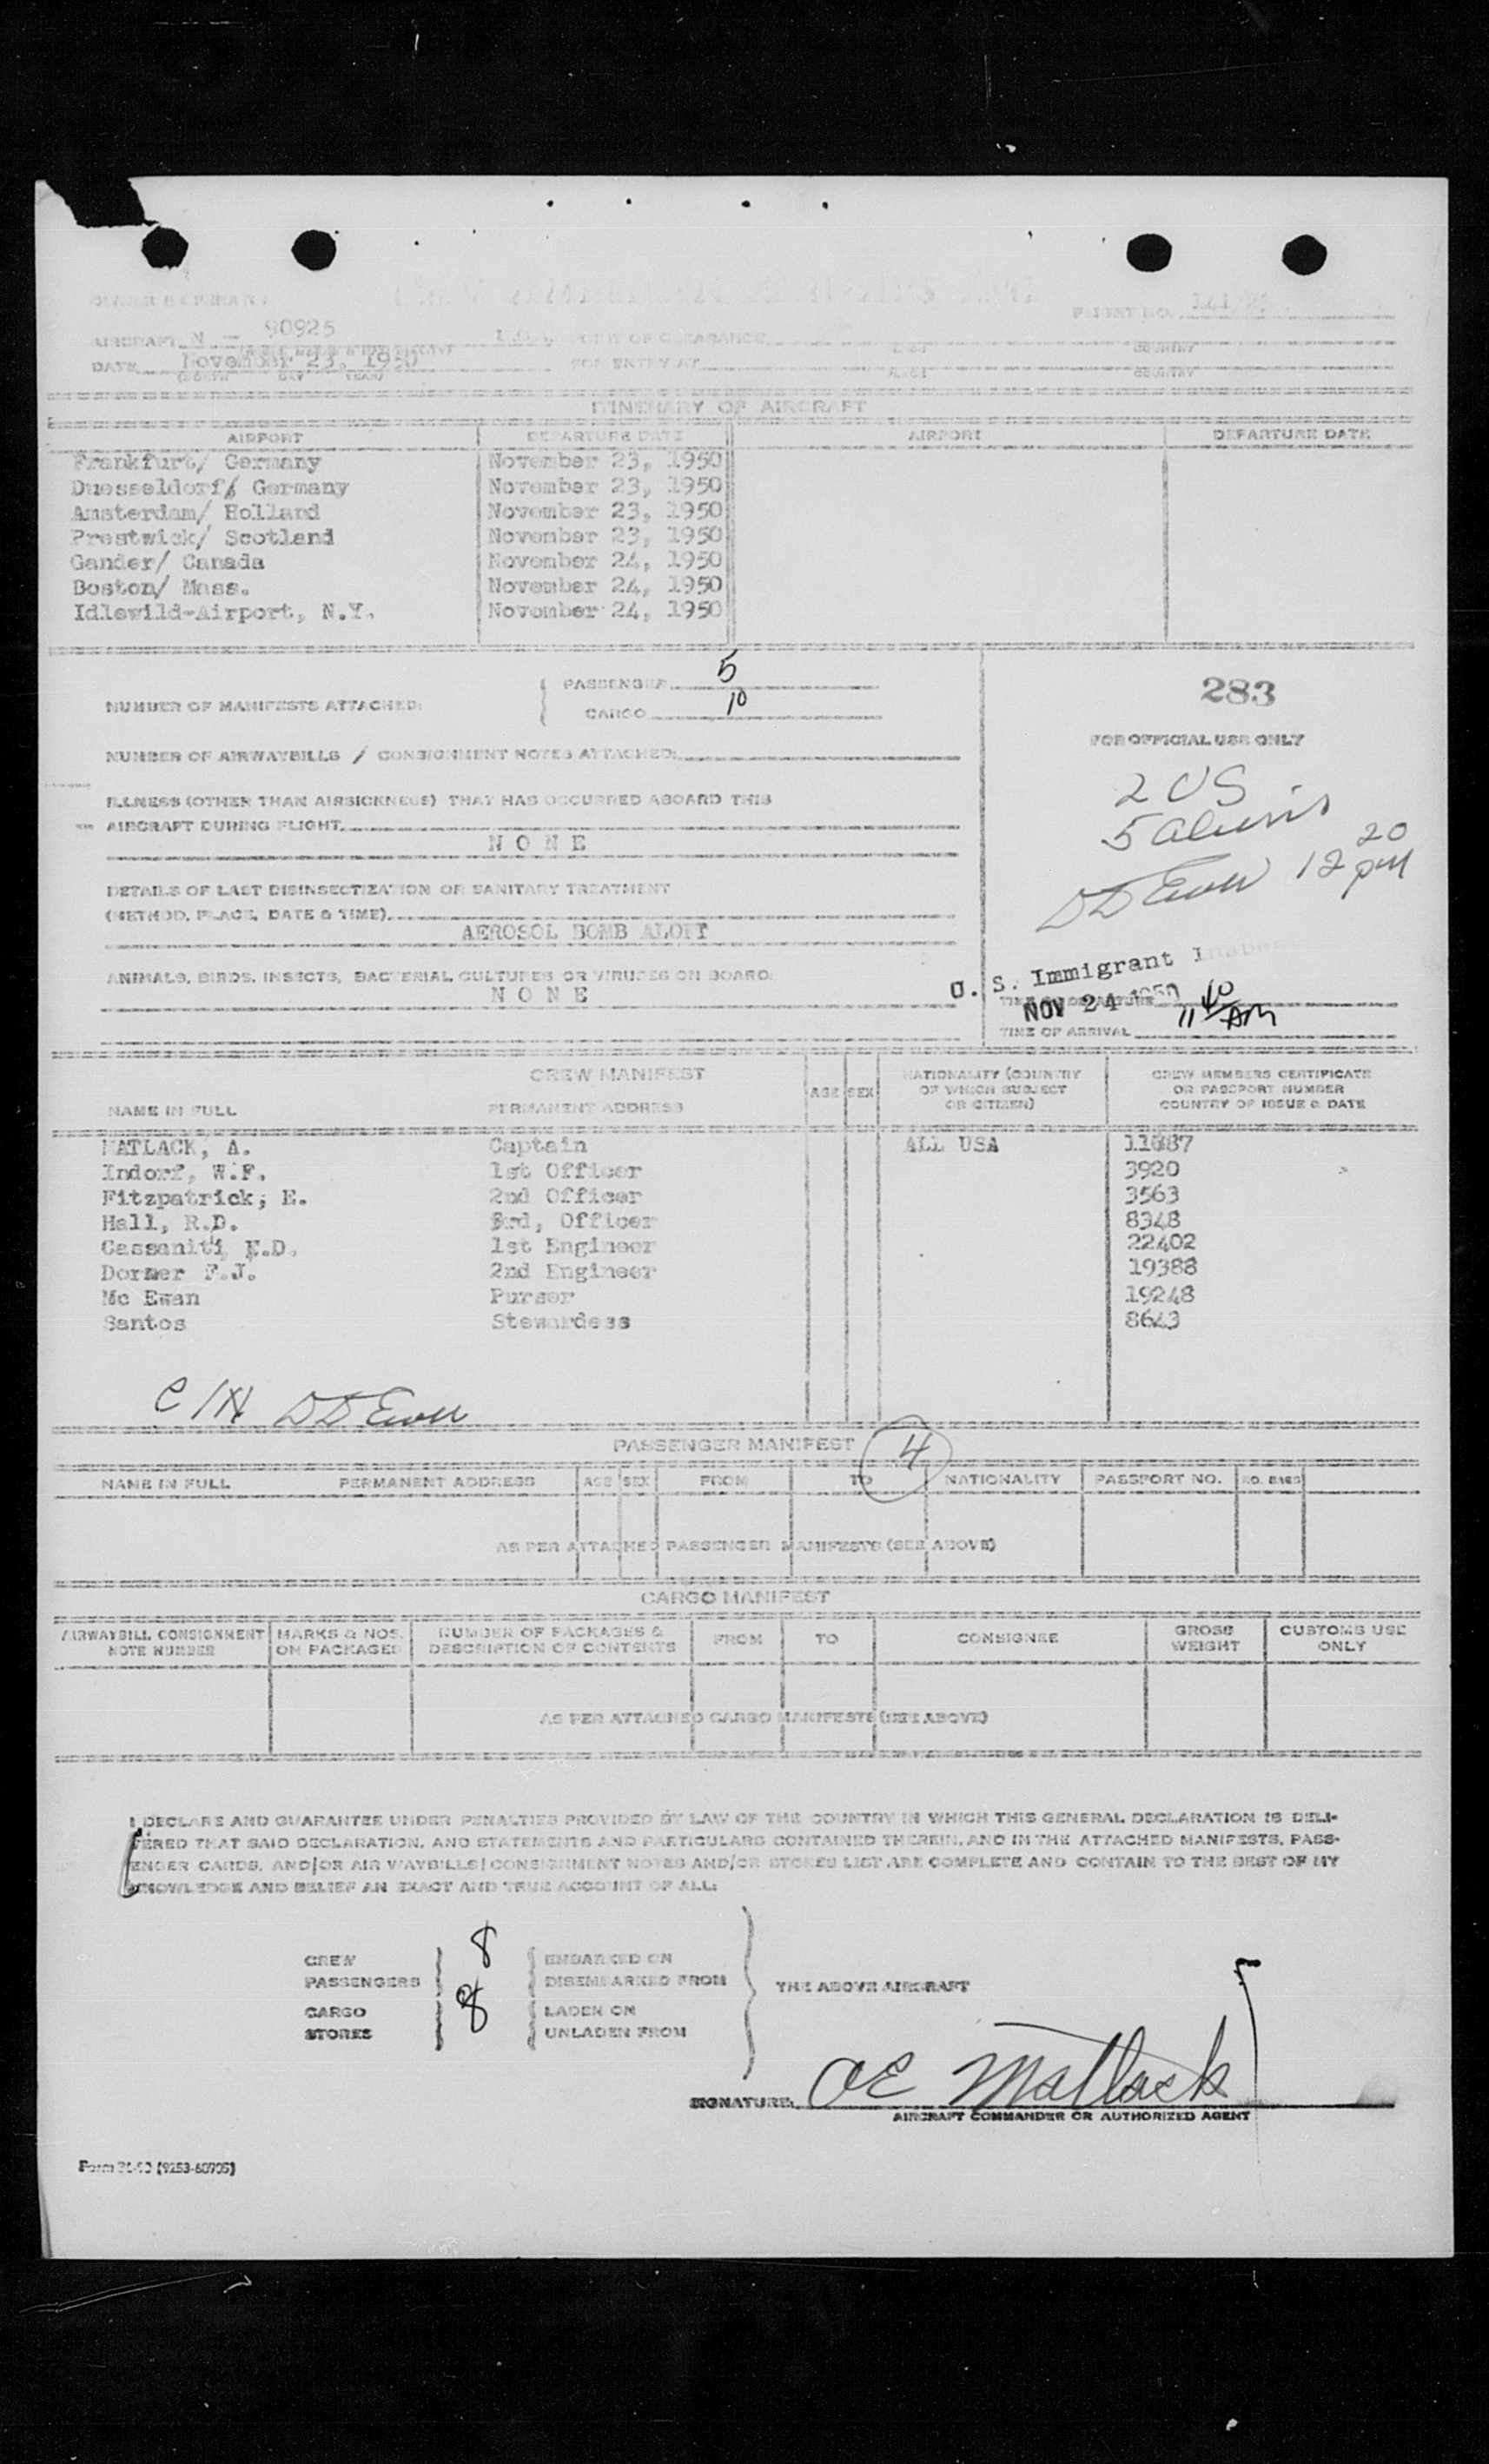 AIRCRAFT N - 90925
DATE November 23, 1950
(MONTH DAY YEAR)
PORT OF CLEARANCE
FOR ENTRY AT
COUNTRY
COUNTRY
FLIGHT NO.
ITINERARY OF AIRCRAFT
AIRPORT DEPARTURE DATE AIRPORT DEPARTURE DATE
Frankfurt/ Germany November 23, 1950
Duesseldorf/ Germany November 23, 1950
Amsterdam/ Holland November 23, 1950
Prestwick/ Scotland November 23, 1950
Gander/ Canada November 24, 1950
Boston/ Mass. November 24, 1950
Idlewild-Airport, N.Y. November 24, 1950
NUMBER OF MANIFESTS ATTACHED:
PASSENGER 5
CARGO 10
NUMBER OF AIRWAYBILLS / CONSIGNMENT NOTES ATTACHED:
ILLNESS (OTHER THAN AIRSICKNESS) THAT HAS OCCURRED ABOARD THIS
AIRCRAFT DURING FLIGHT
N O N E
DETAILS OF LAST DISINSECTIZATION OR SANITARY TREATMENT
(METHOD, PLACE, DATE & TIME)
AEROSOL BOMB ALOFT
ANIMALS, BIRDS, INSECTS, BACTERIAL CULTURES OR VIRUSES ON BOARD:
N O N E
283
FOR OFFICIAL USE ONLY
2 US
5 aliens
12 20 pm
U. S. Immigrant
NOV 24 1950
TIME OF DEPARTURE
TIME OF ARRIVAL 11 40 AM
CREW MANIFEST
NAME IN FULL PERMANENT ADDRESS AGE SEX NATIONALITY (COUNTRY OF WHICH SUBJECT OR CITIZEN) CREW MEMBERS CERTIFICATE OR PASSPORT NUMBER COUNTRY OF ISSUE & DATE
MATLACK, A. Captain ALL USA 11687
Indorf, W.F. 1st Officer 3920
Fitzpatrick, E. 2nd Officer 3563
Hall, R.D. 3rd, Officer 8348
Cassaniti, E.D. 1st Engineer 22402
Dormer F.J. 2nd Engineer 19388
Mc Ewan Purser 19248
Santos Stewardess 8643
PASSENGER MANIFEST 4
NAME IN FULL PERMANENT ADDRESS AGE SEX FROM TO NATIONALITY PASSPORT NO. NO. BAGS
AS PER ATTACHED PASSENGER MANIFESTS (SEE ABOVE)
CARGO MANIFEST
AIRWAYBILL CONSIGNMENT NOTE NUMBER MARKS & NOS. ON PACKAGES NUMBER OF PACKAGES & DESCRIPTION OF CONTENTS FROM TO CONSIGNEE GROSS WEIGHT CUSTOMS USE ONLY
AS PER ATTACHED CARGO MANIFESTS (SEE ABOVE)
I DECLARE AND GUARANTEE UNDER PENALTIES PROVIDED BY LAW OF THE COUNTRY IN WHICH THIS GENERAL DECLARATION IS DELI-
VERED THAT SAID DECLARATION, AND STATEMENTS AND PARTICULARS CONTAINED THEREIN, AND IN THE ATTACHED MANIFESTS, PASS-
ENGER CARDS, AND/OR AIR WAYBILLS/CONSIGNMENT NOTES AND/OR STORES LIST ARE COMPLETE AND CONTAIN TO THE BEST OF MY
KNOWLEDGE AND BELIEF AN EXACT AND TRUE ACCOUNT OF ALL:
CREW 8 EMBARKED ON
PASSENGERS DISEMBARKED FROM
THE ABOVE AIRCRAFT
CARGO 8 LADEN ON
STORES UNLADEN FROM
SIGNATURE: AE Matlack
AIRCRAFT COMMANDER OR AUTHORIZED AGENT